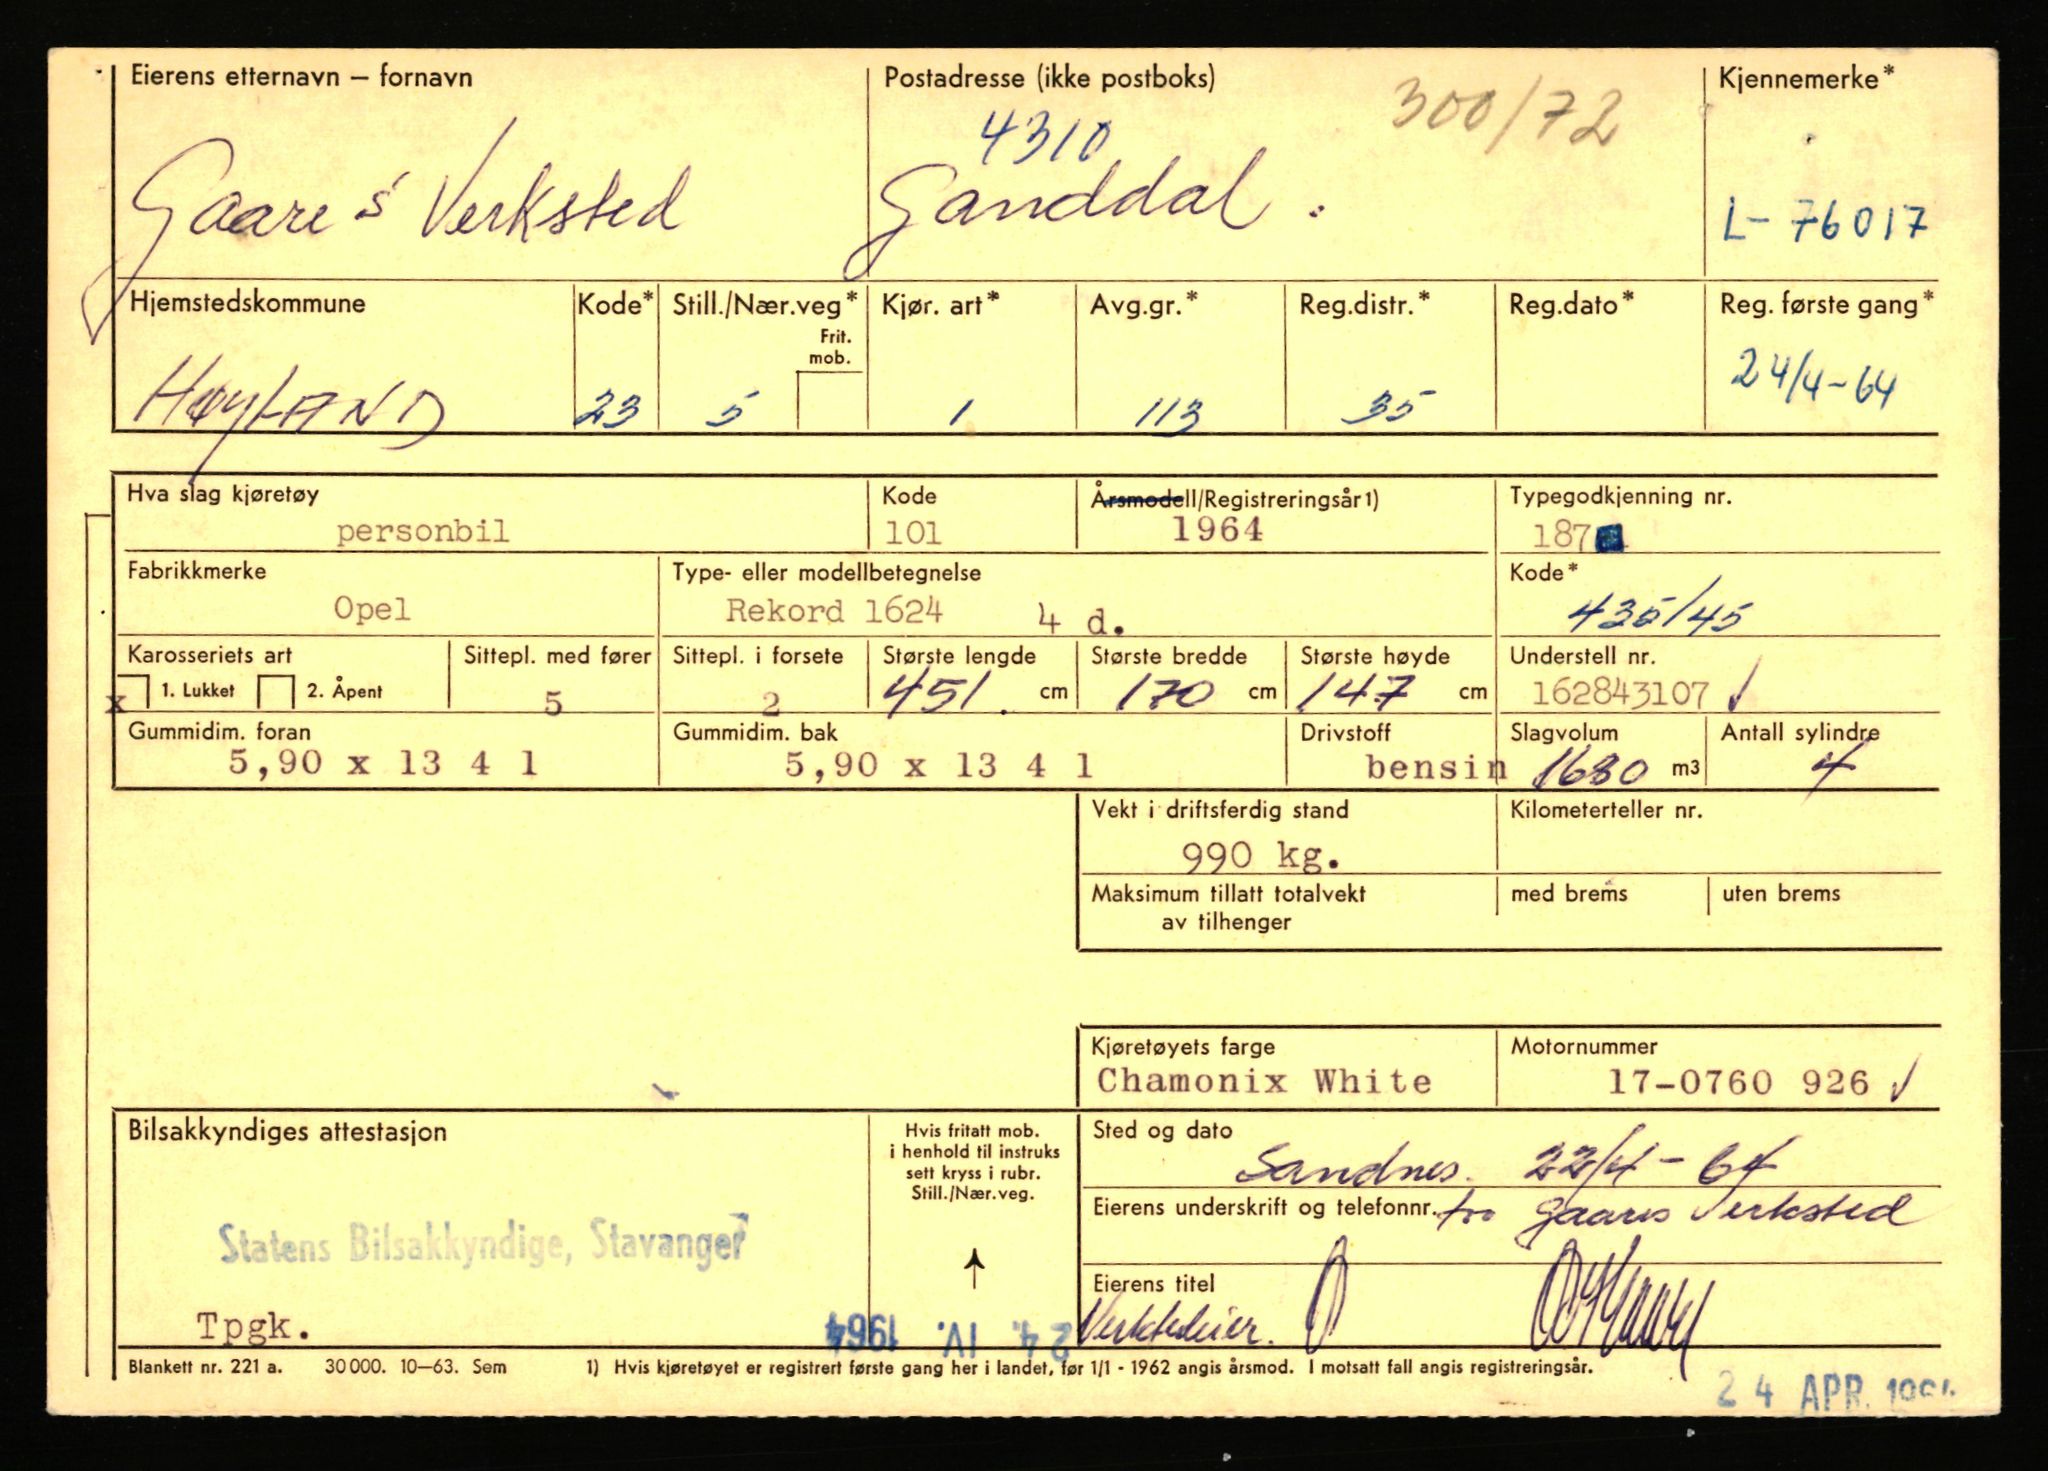 Eierens etternavn – fornavn Postadresse (ikke postboks) 300/72 Kjennemerke*
4310
Gaare's Verksted Ganddal. L- 76017
Hjemstedskommune Kode* Still./Nær.veg* Kjør. art* Avg.gr.* Reg.distr.* Reg.dato* Reg. første gang*
Frit.
mob.
24/4-64
HØYLAND 23 5 1 113 35
Hva slag kjøretøy Kode Årsmodell/Registreringsår1) Typegodkjenning nr.
personbil 101 1964 187
Fabrikkmerke Type- eller modellbetegnelse Kode*
Opel Rekord 1624 4 d. 435/45
Karosseriets art Sittepl. med fører Sittepl. i forsete Største lengde Største bredde Største høyde Understell nr.
x 1. Lukket 2. Åpent 5 2 451. cm 170 cm 147 cm 162843107 ✓
Gummidim. foran Gummidim. bak Drivstoff Slagvolum Antall sylindre
5,90 x 13 4 l 5,90 x 13 4 l bensin 1680 m3 4
Vekt i driftsferdig stand Kilometerteller nr.
990 kg.
Maksimum tillatt totalvekt med brems uten brems
av tilhenger
Kjøretøyets farge Motornummer
Chamonix White 17-0760 926 ✓
Bilsakkyndiges attestasjon Hvis fritatt mob. Sted og dato
i henhold til instruks
sett kryss i rubr.
Still./Nær.veg.
Sandnes. 22/4 - 64
Eierens underskrift og telefonnr. for Gaares Verksted
Statens Bilsakkyndige, Stavanger
Eierens titel
Tpgk. 24. IV. 1964 Verkstedeier.
Blankett nr. 221 a. 30 000. 10–63. Sem 1) Hvis kjøretøyet er registrert første gang her i landet, før 1/1 - 1962 angis årsmod. I motsatt fall angis registreringsår.
24 APR. 1964